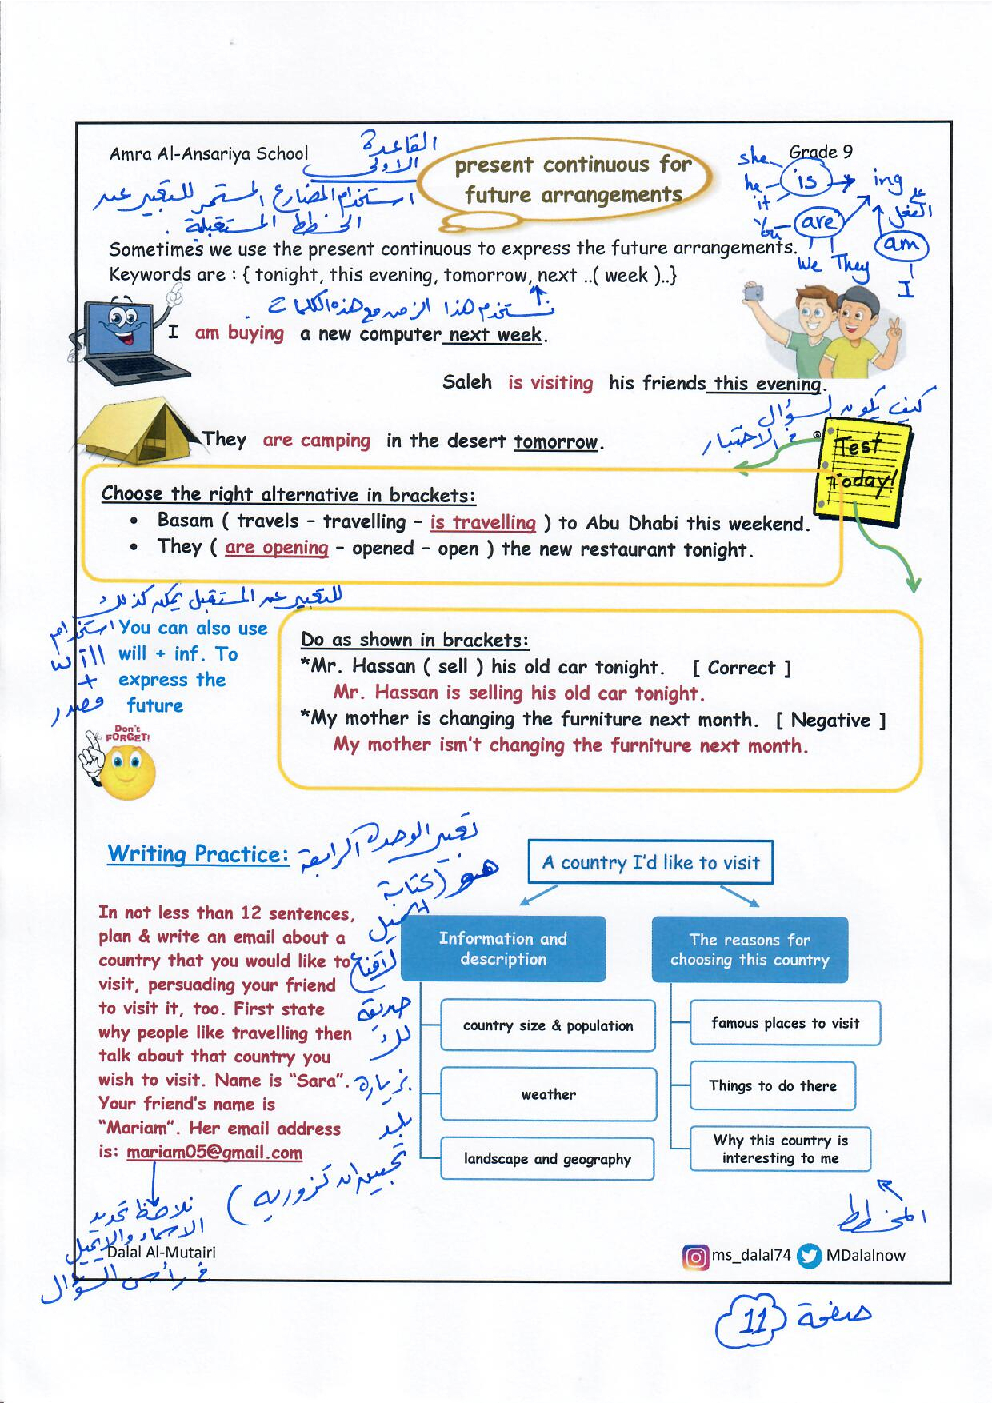 Amra Al-Ansariya School
القاعدة
الاولى
present continuous for
future arrangements
Grade 9
she
he
it
is
ing
You
are
الفعل
am
We They
I
استخدام المضارع المستمر للتعبير عن
الخطط المستقبلة
Sometimes we use the present continuous to express the future arrangements.
Keywords are : { tonight, this evening, tomorrow, next ..( week )..}
نستخدم هذا الزمن مع هذه الكلمات
I am buying a new computer next week.
Saleh is visiting his friends this evening.
كيف يكون السؤال
في الاختبار
They are camping in the desert tomorrow.
Test
Today!
Choose the right alternative in brackets:
• Basam ( travels – travelling – is travelling ) to Abu Dhabi this weekend.
• They ( are opening – opened – open ) the new restaurant tonight.
للتعبير عن المستقبل يمكن كذلك
استخدام
will
+
مصدر
You can also use
will + inf. To
express the
future
Don't
FORGET!
Do as shown in brackets:
*Mr. Hassan ( sell ) his old car tonight. [ Correct ]
Mr. Hassan is selling his old car tonight.
*My mother is changing the furniture next month. [ Negative ]
My mother ism't changing the furniture next month.
Writing Practice:
تعبير الوحدة الرابعة
هو (كتابة
ايميل
لاقناع
صديقة
لك
بزيارة
بلد
تحبين ان تزوريه )
A country I'd like to visit
In not less than 12 sentences,
plan & write an email about a
country that you would like to
visit, persuading your friend
to visit it, too. First state
why people like travelling then
talk about that country you
wish to visit. Name is "Sara".
Your friend's name is
"Mariam". Her email address
is: mariam05@gmail.com
Information and
description
country size & population
weather
landscape and geography
The reasons for
choosing this country
famous places to visit
Things to do there
Why this country is
interesting to me
المخطط
نلاحظ تحديد
الاسماء والايميل
في رأس السؤال
Dalal Al-Mutairi
ms_dalal74
MDalalnow
صفحة 11